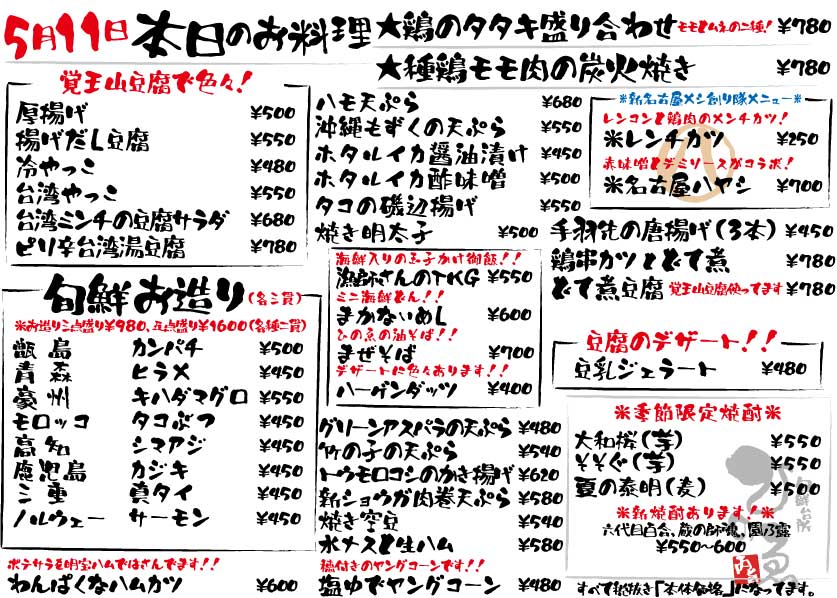 5月11日 本日のお料理
★鶏のタタキ盛り合わせ モモとムネの二種! ¥780
★種鶏モモ肉の炭火焼き ¥780
覚王山豆腐で色々!
厚揚げ ¥500
揚げだし豆腐 ¥550
冷やっこ ¥480
台湾やっこ ¥550
台湾ミンチの豆腐サラダ ¥680
ピリ辛台湾湯豆腐 ¥780
旬鮮お造り(各三貫)
※お造り三点盛り¥980、五点盛り¥1600(各種二貫)
甑島 カンパチ ¥500
青森 ヒラメ ¥450
豪州 キハダマグロ ¥550
モロッコ タコぶつ ¥450
高知 シマアジ ¥450
鹿児島 カジキ ¥450
三重 真タイ ¥450
ノルウェー サーモン ¥450
ポテサラと明宝ハムではさんでます!!
わんぱくなハムカツ ¥600
ハモ天ぷら ¥680
沖縄もずくの天ぷら ¥550
ホタルイカ醤油漬け ¥450
ホタルイカ酢味噌 ¥500
タコの磯辺揚げ ¥550
焼き明太子 ¥500
海鮮入りの玉子かけ御飯!!
漁師さんのTKG ¥550
ミニ海鮮どん!!
まかないめし ¥600
ひのゑの油そば!!
まぜそば ¥700
デザートに色々あります!!
ハーゲンダッツ ¥400
グリーンアスパラの天ぷら ¥480
竹の子の天ぷら ¥540
トウモロコシのかき揚げ ¥620
新ショウガ肉巻天ぷら ¥580
焼き空豆 ¥540
水ナスと生ハム ¥580
穂付きのヤングコーンです!!
塩ゆでヤングコーン ¥480
※新名古屋メシ創り隊メニュー※
レンコンと鶏肉のメンチカツ!
※レンチカツ ¥250
赤味噌とデミソースがコラボ!
※名古屋ハヤシ ¥700
手羽先の唐揚げ(3本) ¥450
鶏串カツとどて煮 ¥780
どて煮豆腐 覚王山豆腐使ってます ¥780
豆腐のデザート!!
豆乳ジェラート ¥480
※季節限定焼酎※
大和桜(芋) ¥550
そそぐ(芋) ¥550
夏の泰明(麦) ¥500
※新焼酎あります!※
六代目百合、蔵の師魂、園乃露
¥550~600
すべて税抜き「本体価格」になってます。